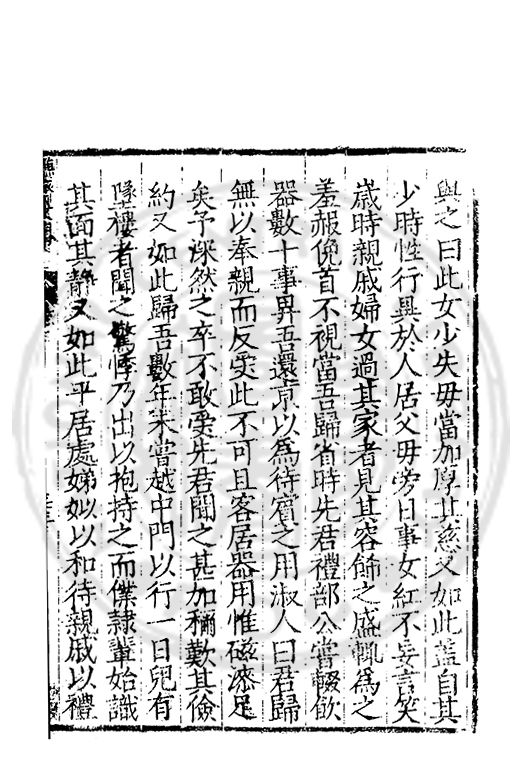 與之曰此女少失毋當加厚其慈又如此蓋自其
少時性行異於人居父毋旁日事女紅不妄言笑
歲時親戚婦女過其家者見其容飾之盛輒爲之
羞赧俛首不視當吾歸省時先君禮部公嘗輟飲
器數十事畀吾還京以爲待賓之用淑人曰君歸
無以奉親而反受此不可且客居器用惟磁漆足
矣予深然之卒不敢受先君聞之甚加稱歎其儉
約又如此歸吾數年未嘗越中門以行一日兒有
墜樓者聞之驚悸乃出以抱持之而僕隸輩始識
其面其靜又如此平居處娣姒以和待親戚以禮